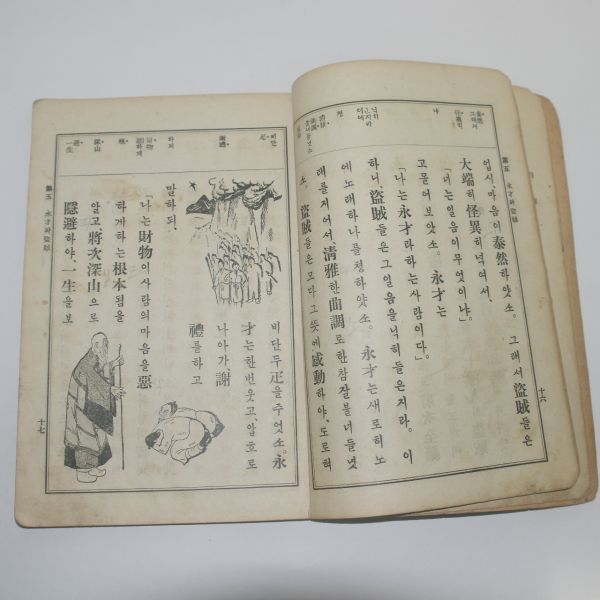 업서, 마음이 泰然하얏소. 그래서 盜賊들은
大端히 怪異히녁여서,
「너는일음이무엇이냐」
고물어보앗소. 永才는
「나는永才라하는사람이다」
하니, 盜賊들은그일음을닉히들은지라. 이
에노래하나를청하얏소. 永才는새로히노
래를지어서, 淸雅한曲調로한참잘불너들녓
소. 盜賊들은모다그뜻에感動하야, 도로혀
第五 永才와盜賊
十六
비단두疋을주엇소. 永
才는한번웃고, 압흐로
나아가謝
禮를하고
말하되,
「나는財物이사람의마음을惡
하게하는根本됨을
알고, 將次深山으로
隱避하야, 一生을보
第五 永才와盜賊
十七
비단
疋
謝禮
하되
財物
하게
根
深山
避
一生